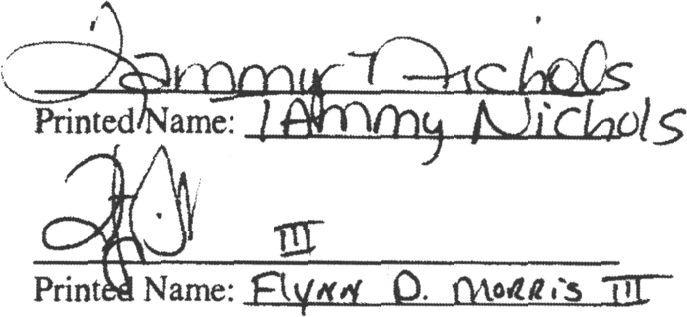 Tammy Nichols
Printed Name: TAmmy Nichols
III
Printed Name: Flynn D. Morris III